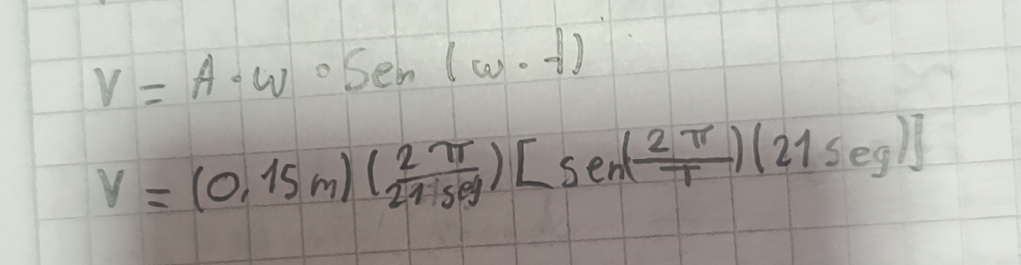 V = A · w · Sen (w · t)
V = (0,15m) (2π/21 seg) [sen(2π/T) (21 seg)]